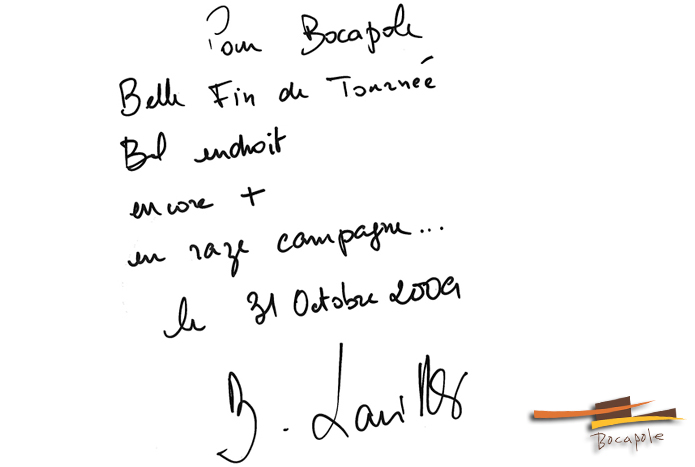 Pour Bocapole
Belle Fin de Tournée
Bel endroit
encore +
en raze campagne...
le 31 Octobre 2009
B. Lavilliers
Bocapole